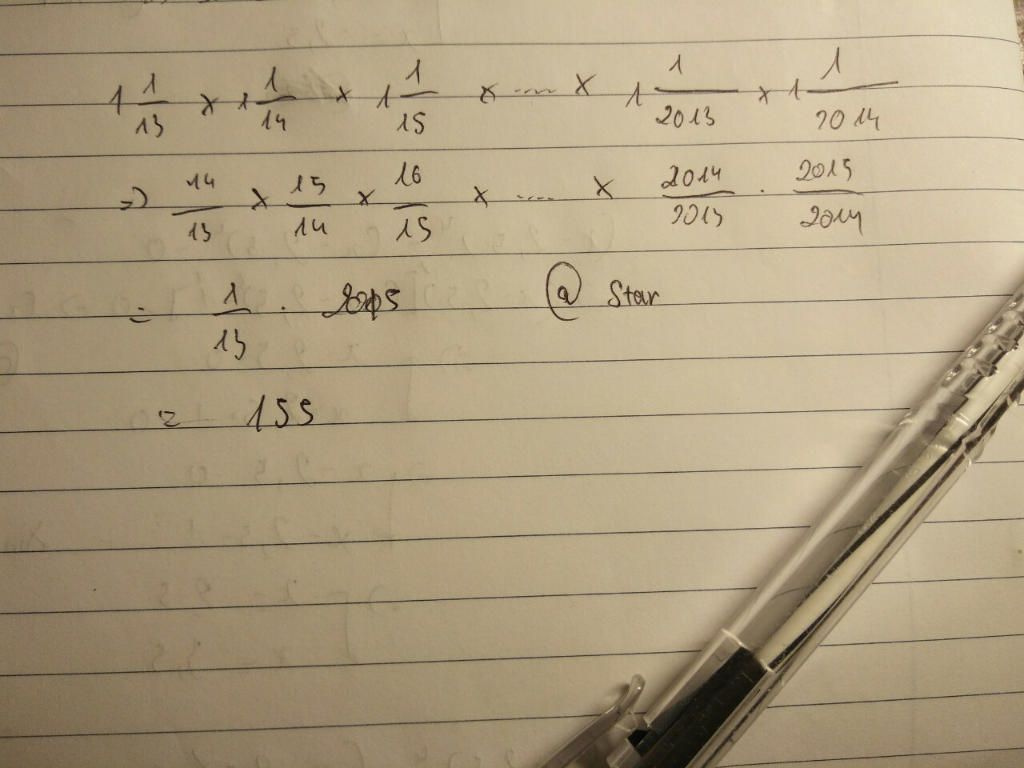 1 1/13 x 1 1/14 x 1 1/15 x .... x 1 1/2013 x 1 1/2014
=> 14/13 x 15/14 x 16/15 x .... x 2014/2013 . 2015/2014
= 1/13 . 2015 @ Star
= 155